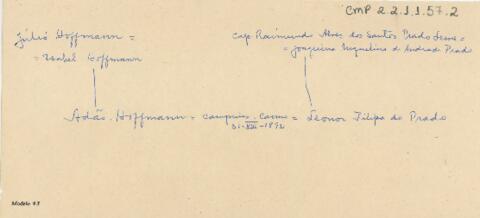 CMP 2.2.1.1.57.2
Júlio Hoffmann =
= Izabel Hoffmann
Cap. Raimundo Alves dos Santos Prado Leme =
= Joaquina Miquelina de Andrade Prado
Adão Hoffmann = Campinas. Carmo = Leonor Filipa do Prado
31-XII-1892
Modelo 43